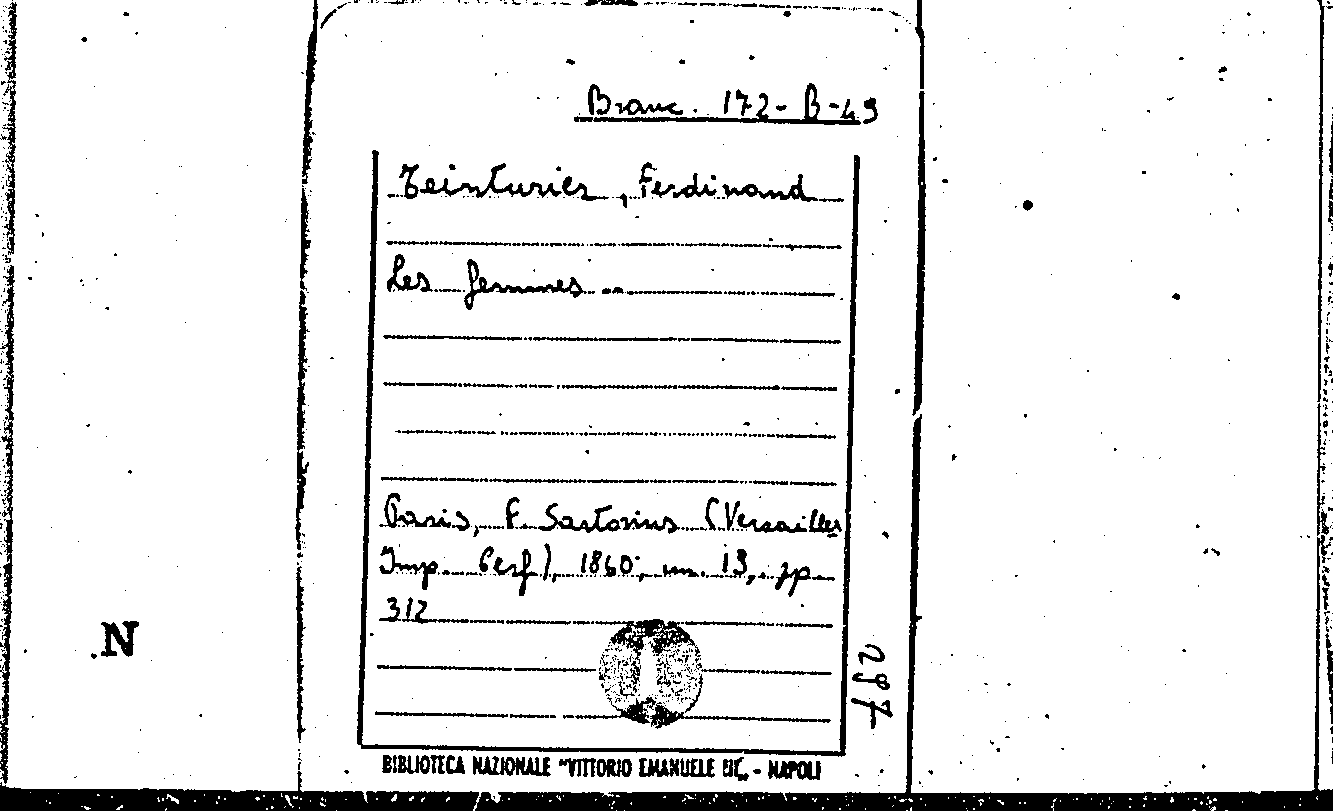 Branc. 172-B-49
Teinturier, Ferdinand
Les femmes...
Paris, F. Sartorius (Versailles
Imp. Cerf), 1860; in. 13, pp.
312
N
287
BIBLIOTECA NAZIONALE "VITTORIO EMANUELE III" - NAPOLI